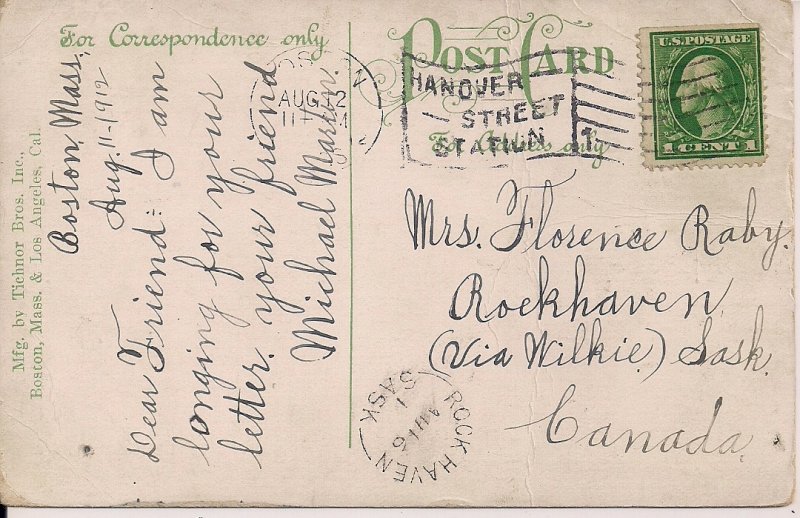 For Correspondence only
POST CARD
For Address only
Mfg. by Tichnor Bros. Inc.,
Boston, Mass. & Los Angeles, Cal.
Boston, Mass.
Aug. 11-1912
Dear Friend: I am
longing for your
letter. your friend
Michael Martin.
BOSTON
AUG 12
HANOVER
STREET
STATION
1
U.S. POSTAGE
1 CENT 1
Mrs. Florence Raby.
Rockhaven
(Via Wilkie) Sask.
Canada
ROCKHAVEN
SASK